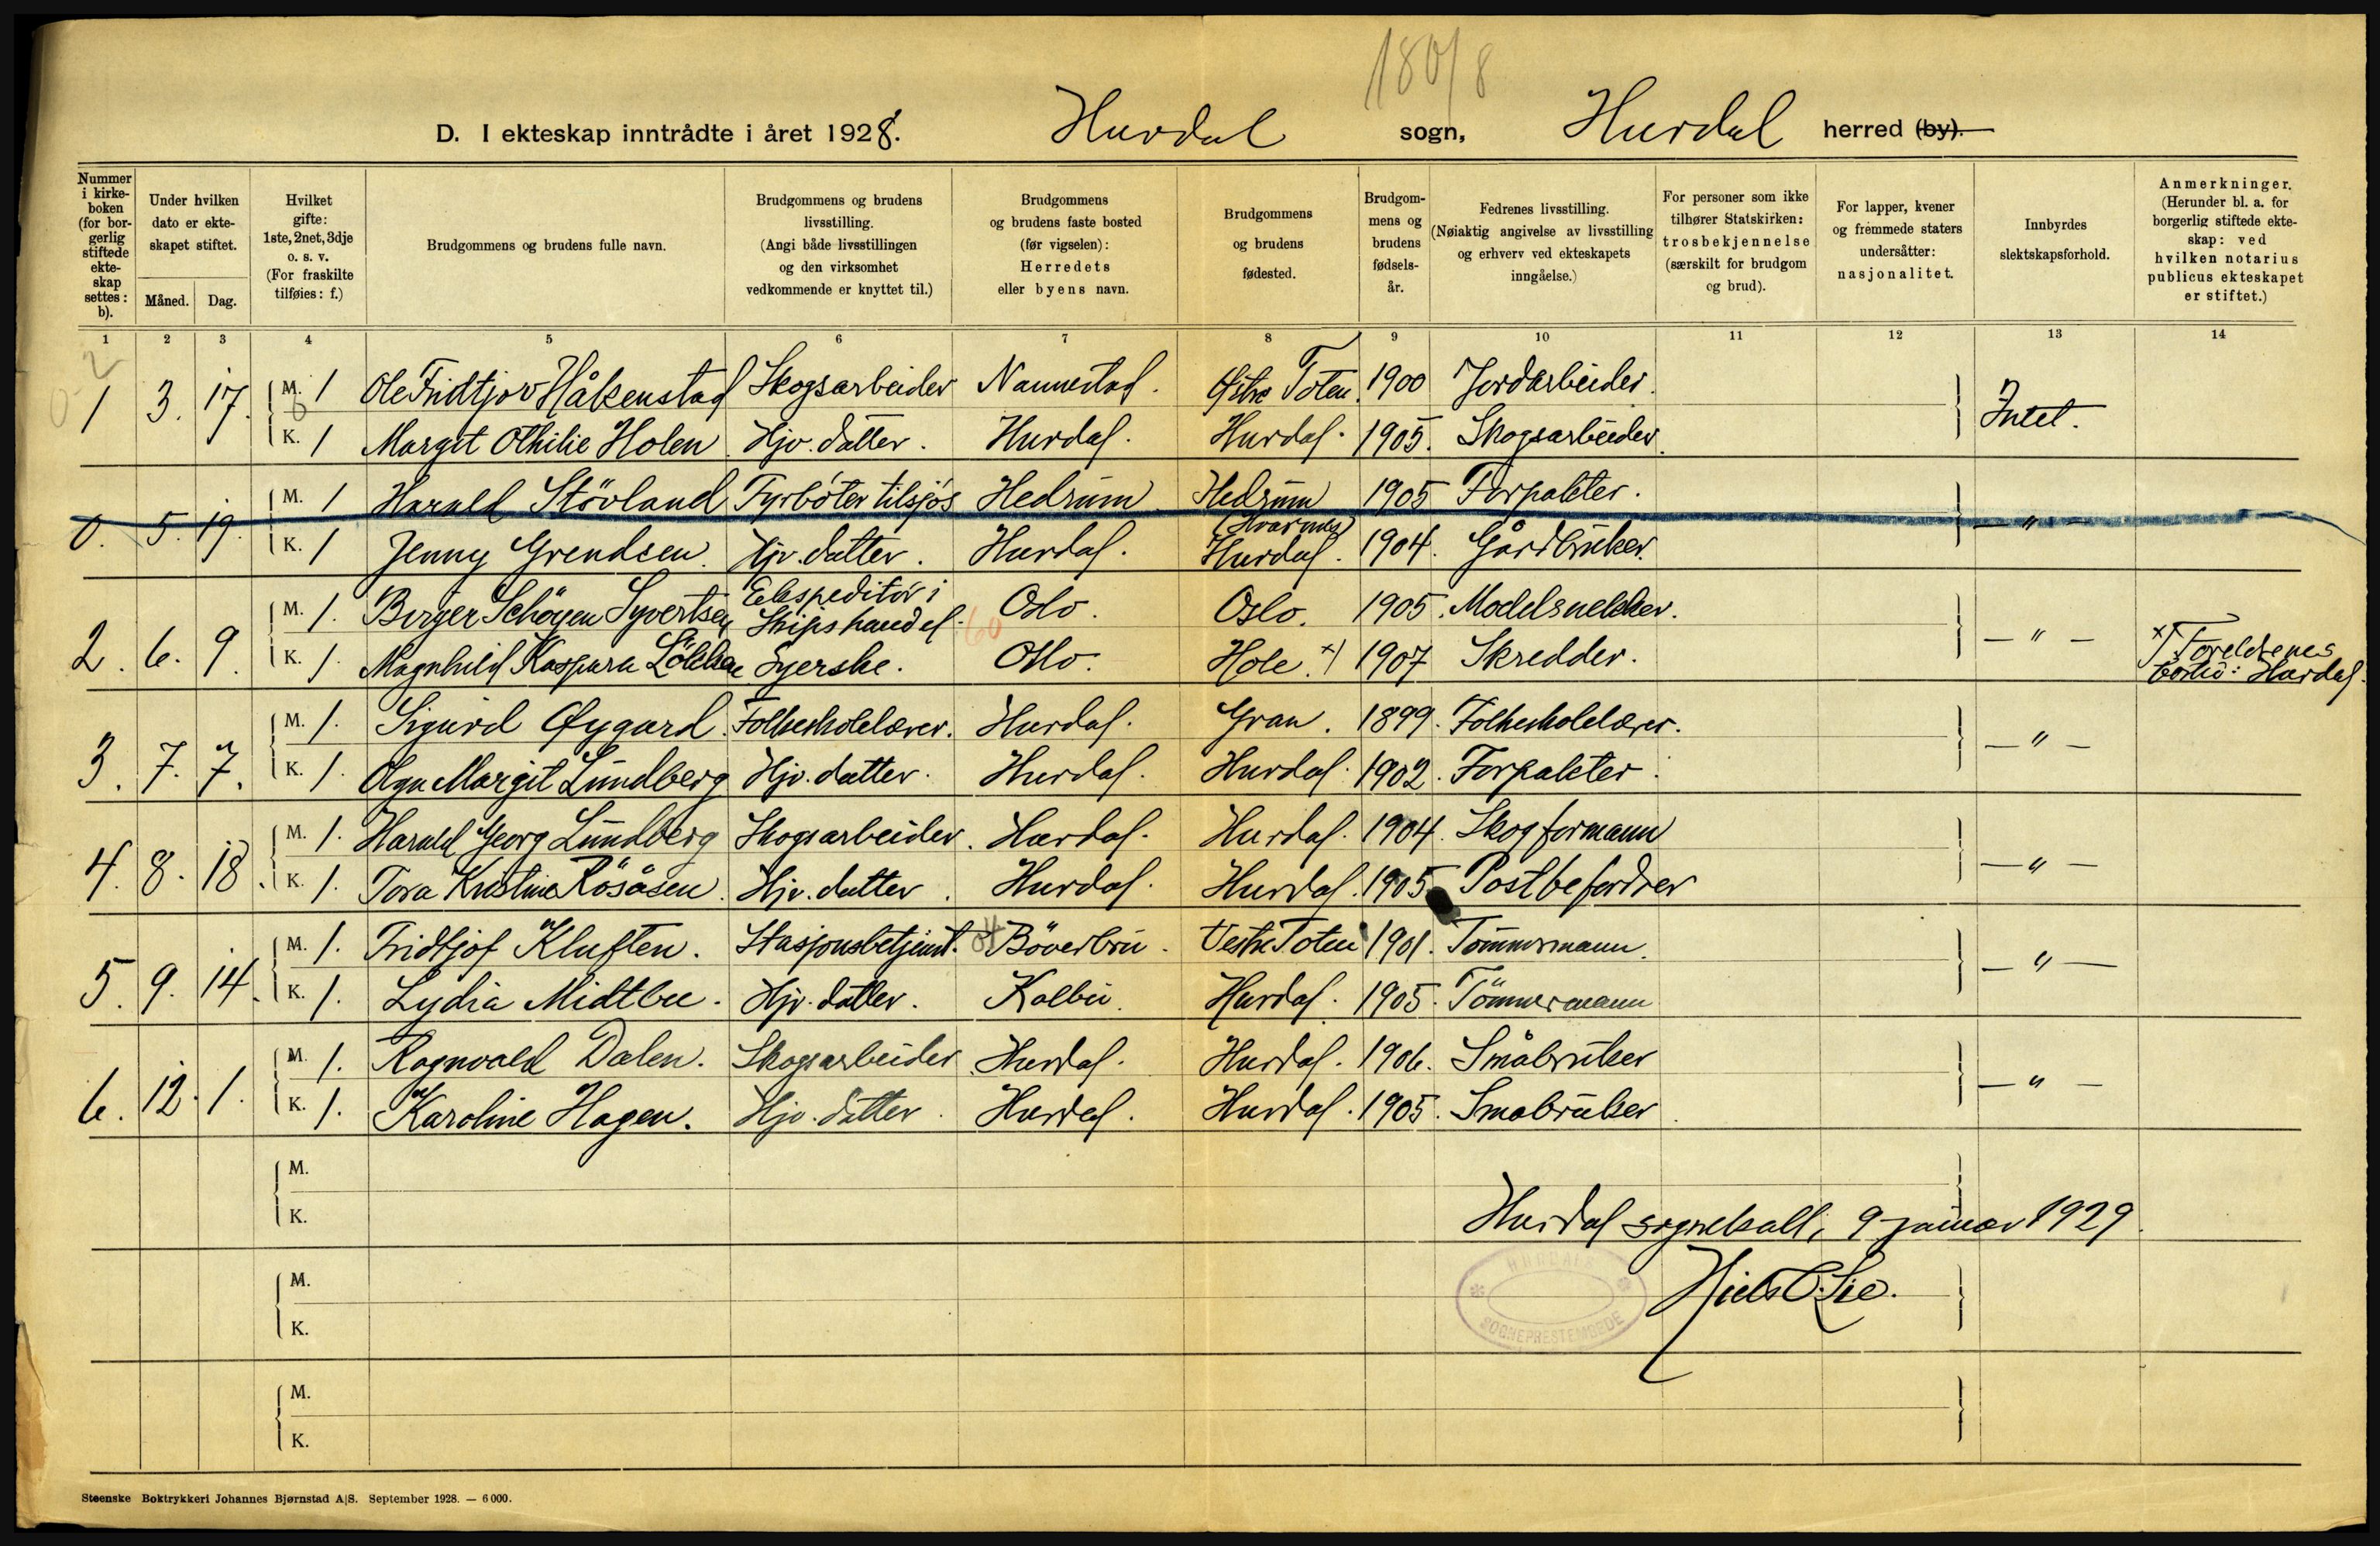 180/8
D. I ekteskap inntrådte i året 1928. Hurdal sogn, Hurdal herred (by).
Nummer i kirkeboken (for borgerlig stiftede ekteskap settes: b).
Under hvilken dato er ekteskapet stiftet.
Måned. Dag.
Hvilket gifte: 1ste, 2net, 3dje o. s. v. (For fraskilte tilføies: f.)
Brudgommens og brudens fulle navn.
Brudgommens og brudens livsstilling. (Angi både livsstillingen og den virksomhet vedkommende er knyttet til.)
Brudgommens og brudens faste bosted (før vigselen): Herredets eller byens navn.
Brudgommens og brudens fødested.
Brudgommens og brudens fødselsår.
Fedrenes livsstilling. (Nøiaktig angivelse av livsstilling og erhverv ved ekteskapets inngåelse.)
For personer som ikke tilhører Statskirken: trosbekjennelse (særskilt for brudgom og brud).
For lapper, kvener og fremmede staters undersåtter: nasjonalitet.
Innbyrdes slektskapsforhold.
Anmerkninger. (Herunder bl. a. for borgerlig stiftede ekteskap: ved hvilken notarius publicus ekteskapet er stiftet.)
1 2 3 4 5 6 7 8 9 10 11 12 13 14
1 3. 17. M. 1 Ole Fridtjov Håkenstad Skogsarbeider Nannestad. Østre Toten. 1900 Jordarbeider. Intet.
K. 1 Margit Othilie Holen. Hjv. datter. Hurdal. Hurdal. 1905. Skogsarbeider.
0. 5. 19. M. 1 Harald Stövland Fyrböter tilsjös Hedrum Hedrum (Hvarnes) 1905 Forpakter. — " —
K. 1 Jenny Grendsen. Hjv. datter. Hurdal. Hurdal. 1904. Gårdbruker.
2. 6. 9. M. 1. Birger Schöyen Syvertsen Ekspeditör i Skipshandel. 60 Oslo. Oslo. 1905. Modelsnekker. — " —
K. 1. Magnhild Kaspara Lökken Syerske. Oslo. Hole. x) 1907 Skredder. x) Foreldrenes bosted: Hurdal.
3. 7. 7. M. 1. Sigurd Øygard. Folkeskolelærer. Hurdal. Gran. 1899. Folkeskolelærer. — " —
K. 1. Olga Margit Lundberg Hjv. datter. Hurdal. Hurdal. 1902. Forpakter.
4. 8. 18. M. 1. Harald Georg Lundberg Skogsarbeider. Hurdal. Hurdal. 1904. Skogformann — " —
K. 1. Tora Kristine Rösåsen. Hjv. datter. Hurdal. Hurdal. 1905 Postbefordrer
5. 9. 14. M. 1. Fridtjof Kluften. Stasjonsbetjent. Böverbru. Vestre Toten 1901. Tömmermann. — " —
K. 1. Lydia Midtbu. Hjv. datter. Kolbu. Hurdal. 1905. Tömmermann
6. 12. 1. M. 1. Ragnvald Dalen. Skogsarbeider Hurdal. Hurdal. 1906. Småbruker — " —
K. 1. Karoline Hagen. Hjv. datter. Hurdal. Hurdal. 1905. Småbruker
M.
K.
Hurdal sognekall, 9 januar 1929.
M.
HURDALS SOGNEPRESTEMBEDE
Niels O. Lie.
K.
M.
K.
Steenske Boktrykkeri Johannes Bjørnstad A|S. September 1928. — 6000.